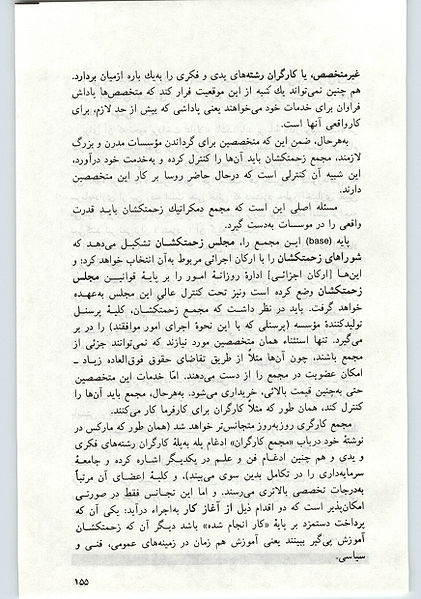 غیرمتخصص، یا کارگران رشته‌های یدی و فکری را به‌یك باره ازمیان بردارد.
هم چنین نمی‌تواند یك شبه از این موقعیت فرار کند که متخصص‌ها پاداش
فراوان برای خدمات خود می‌خواهند یعنی پاداشی که بیش از حد لازم، برای
کارواقعی آنها است.
به‌هرحال، ضمن این که متخصصین برای گرداندن مؤسسات مدرن و بزرگ
لازمند، مجمع زحمتکشان باید آن‌ها را کنترل کرده و به‌خدمت خود درآورد،
این شبیه آن کنترلی است که درحال حاضر روسا بر کار این متخصصین
دارند.
مسئله اصلی این است که مجمع دمکراتیك زحمتکشان بایـد قدرت
واقعی را در موسسات به‌دست گیرد.
پایه (base) ایـن مجمـع را، مجلس زحمتکشـان تشکیل می‌دهد که
شوراهای زحمتکشان را با ارکان اجرائی مربوط به‌آن انتخاب خواهد کرد؛ و
این‌هـا [ارکان اجزائـی] ادارۀ روزانـۀ امـور را بر پایـۀ قوانیـن مجلس
زحمتکشان وضع کرده است ونیز تحت کنترل عالی این مجلس به‌عهـده
خواهد گرفت. باید در نظر داشت که مجمع زحمتکشان، کلیـۀ پرسنـل
تولیدکنندۀ مؤسسه (پرسنلی که با این نحوۀ اجرای امور موافقتند) را در بر
می‌گیرد. تنها استثناء همان متخصصین مورد نیازند که نمی‌توانند جزئی از
مجمع باشند، چون آن‌ها مثلاً از طریق تقاضای حقوق فوق‌العاده زیـاد ـ
امکان عضویت در مجمع را از دست می‌دهند. امّا خدمات این متخصصین
حتی به‌چنین قیمت بالائی، خریداری می‌شود. به‌هرحال، مجمع باید آن‌ها را
کنترل کند، همان طور که مثلاً کارگران برای کارفرما کار می‌کنند.
مجمع کارگری روزبه‌روز متجانس‌تر خواهد شد (همان طور که مارکس در
نوشتۀ خود درباب «مجمع کارگران» ادغام پله به‌پلۀ کارگران رشته‌های فکری
و یدی و هم چنین ادغـام فن و علـم در یکدیگـر اشاره کرده و جامعـۀ
سرمایه‌داری را در تکامل بدین سوی می‌بیند)، و کلیـۀ اعضای آن مرتبـاً
به‌درجات تخصصی بالاتری می‌رسند. و اما این تجانس فقط در صورتـی
امکان‌پذیر است که دو اقدام ذیل از آغاز کار به‌اجراء درآید: یکی آن که
پرداخت دستمزد بر پایۀ «کار انجام شده» باشد دیگر آن که زحمتکشان
آموزش پی‌گیر ببینند یعنی آموزش هم زمان در زمینه‌های عمومی، فنـی و
سیاسی.
۱۵۵